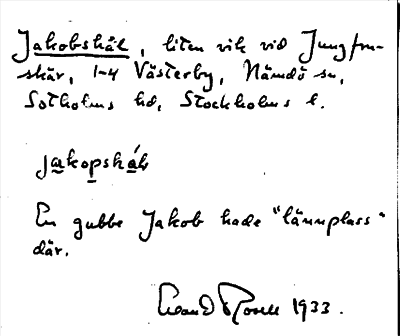 Jakobskål, liten vik vid Jungfru-
skär, 1-4 Västerby, Nämdö sn,
Sotholms hd, Stockholms l.
jakopskål
En gubbe Jakob hade "lännplass"
där.
1933.